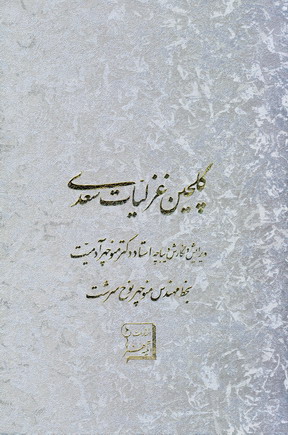 گلچین غزلیات سعدی
ویرایش و نگارش دیباچه استاد دکتر منوچهر آدمیت
بخط مهندس منوچهر نوح سرشت